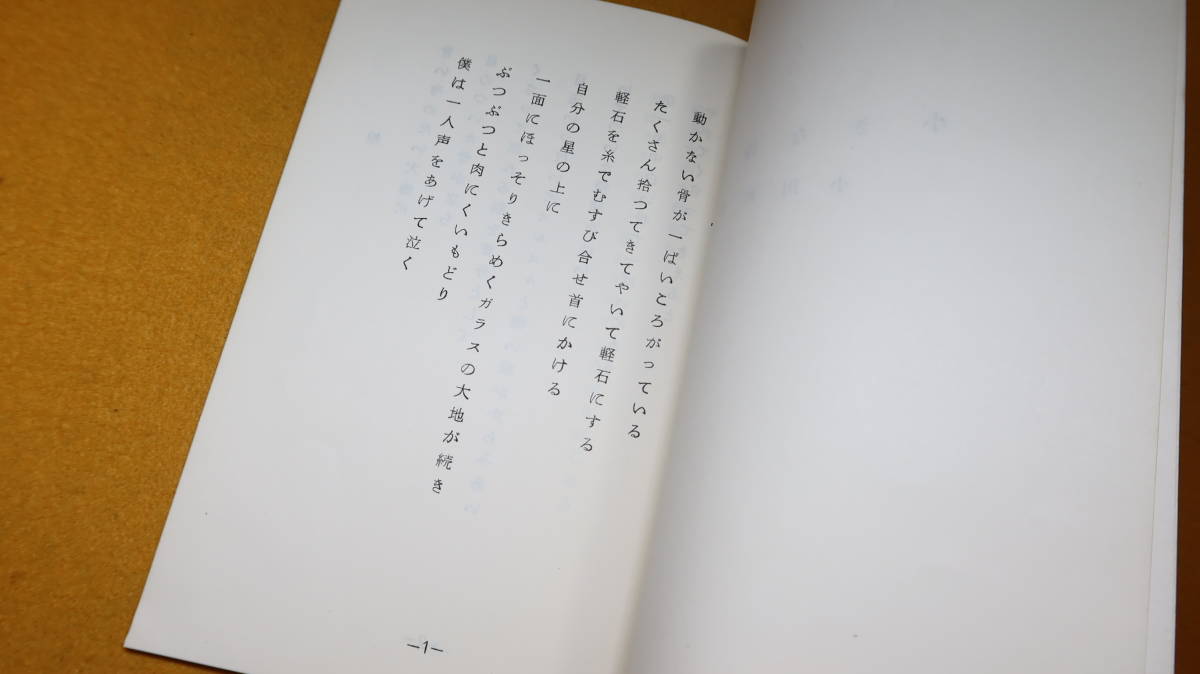 動かない骨が一ぱいころがっている
たくさん拾つてきてやいて軽石にする
軽石を糸でむすび合せ首にかける
自分の星の上に
一面にほっそりきらめくガラスの大地が続き
ぶつぶつと肉にくいもどり
僕は一人声をあげて泣く
—1—